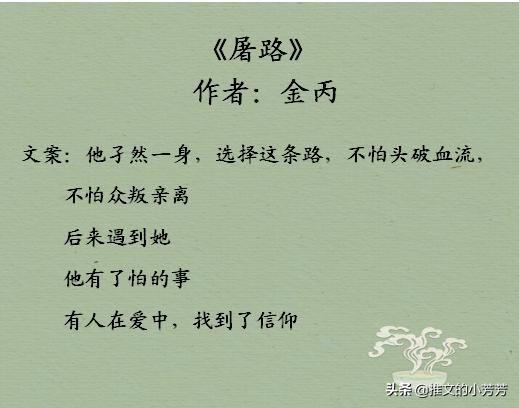 《屠路》
作者：金丙
文案：他孑然一身，选择这条路，不怕头破血流，
不怕众叛亲离
后来遇到她
他有了怕的事
有人在爱中，找到了信仰
头条 @推文的小芳芳